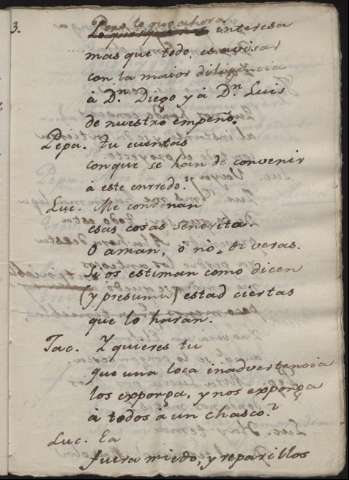 3.
Pero lo que ahora
interesa
mas que todo, es avisar
con la maior diligencia
à Dn. Diego y à Dn Luis
de nuestro empeño,
Pepa. Tu cuentas
conque se han de convenir
à este enrredo?
Luc. Me
esas cosas señorita.
O aman, ò nò, de veras.
Si os estiman como dicen
(y presumi) estad ciertas
que lo haran.
Jac. Y quieres tu
que una loca inadvertencia
los exponga, y nos exponga
à todos à un chasco?
Luc. Ea
fuera miedo, y reparillos